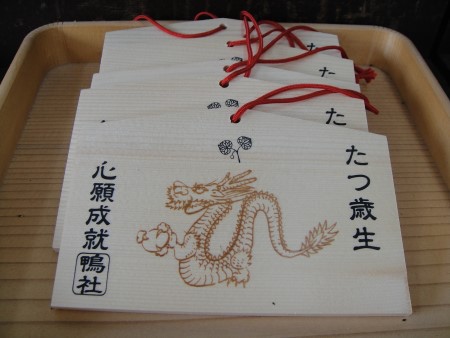 たつ歳生
心願成就
鴨社
た
た
た